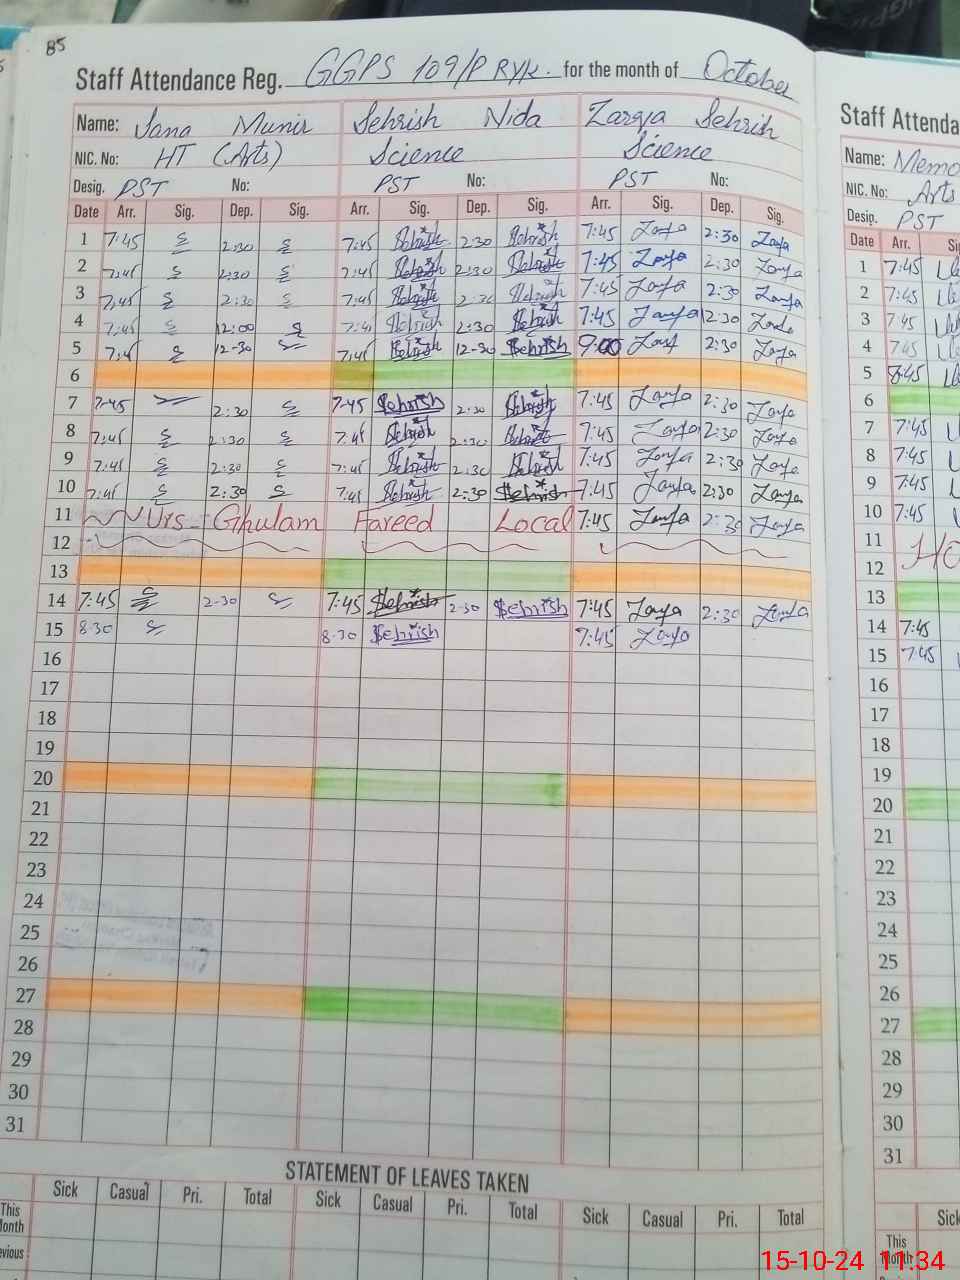 85
Staff Attendance Reg. GGPS 109/P RYK. for the month of October
Name: Sana Munir Sehrish Nida Zarqa Sehrish
NIC. No: HT (Arts) Science Science
Desig. PST No: PST No: PST No:
Date Arr. Sig. Dep. Sig. Arr. Sig. Dep. Sig. Arr. Sig. Dep. Sig.
1 7:45 2:30 7:45 Sehrish 2:30 Sehrish 7:45 2:30
2 7:45 2:30 7:45 Sehrish 2:30 Sehrish 7:45 2:30
3 7:45 2:30 7:45 Sehrish 2:30 Sehrish 7:45 2:30
4 7:45 12:00 7:45 Sehrish 2:30 Sehrish 7:45 2:30
5 7:45 12-30 7:45 Sehrish 12-30 Sehrish 9:00 2:30
6
7 7-45 2:30 7-45 Sehrish 2:30 Sehrish 7:45 2:30
8 7:45 2:30 7:45 Sehrish 2:30 Sehrish 7:45 2:30
9 7:45 2:30 7:45 Sehrish 2:30 Sehrish 7:45 2:30
10 7:45 2:30 7:45 Sehrish 2:30 Sehrish 7:45 2:30
11 Urs Ghulam Fareed Local 7:45 2:30
12
13
14 7:45 2-30 7:45 Sehrish 2-30 Sehrish 7:45 2:30
15 8:30 8-30 Sehrish 7:45
16
17
18
19
20
21
22
23
24
25
26
27
28
29
30
31
STATEMENT OF LEAVES TAKEN
Sick Casual Pri. Total Sick Casual Pri. Total Sick Casual Pri. Total
This
Month
Staff Attenda
Name: Memo
NIC. No: Arts
Desip. PST
Date Arr.
1 7:45
2 7:45
3 7:45
4 7:45
5 8:45
6
7 7:45
8 7:45
9 7:45
10 7:45
11
12
13
14 7:45
15 7:45
16
17
18
19
20
21
22
23
24
25
26
27
28
29
30
31
Sick
This
Month
15-10-24 11:34